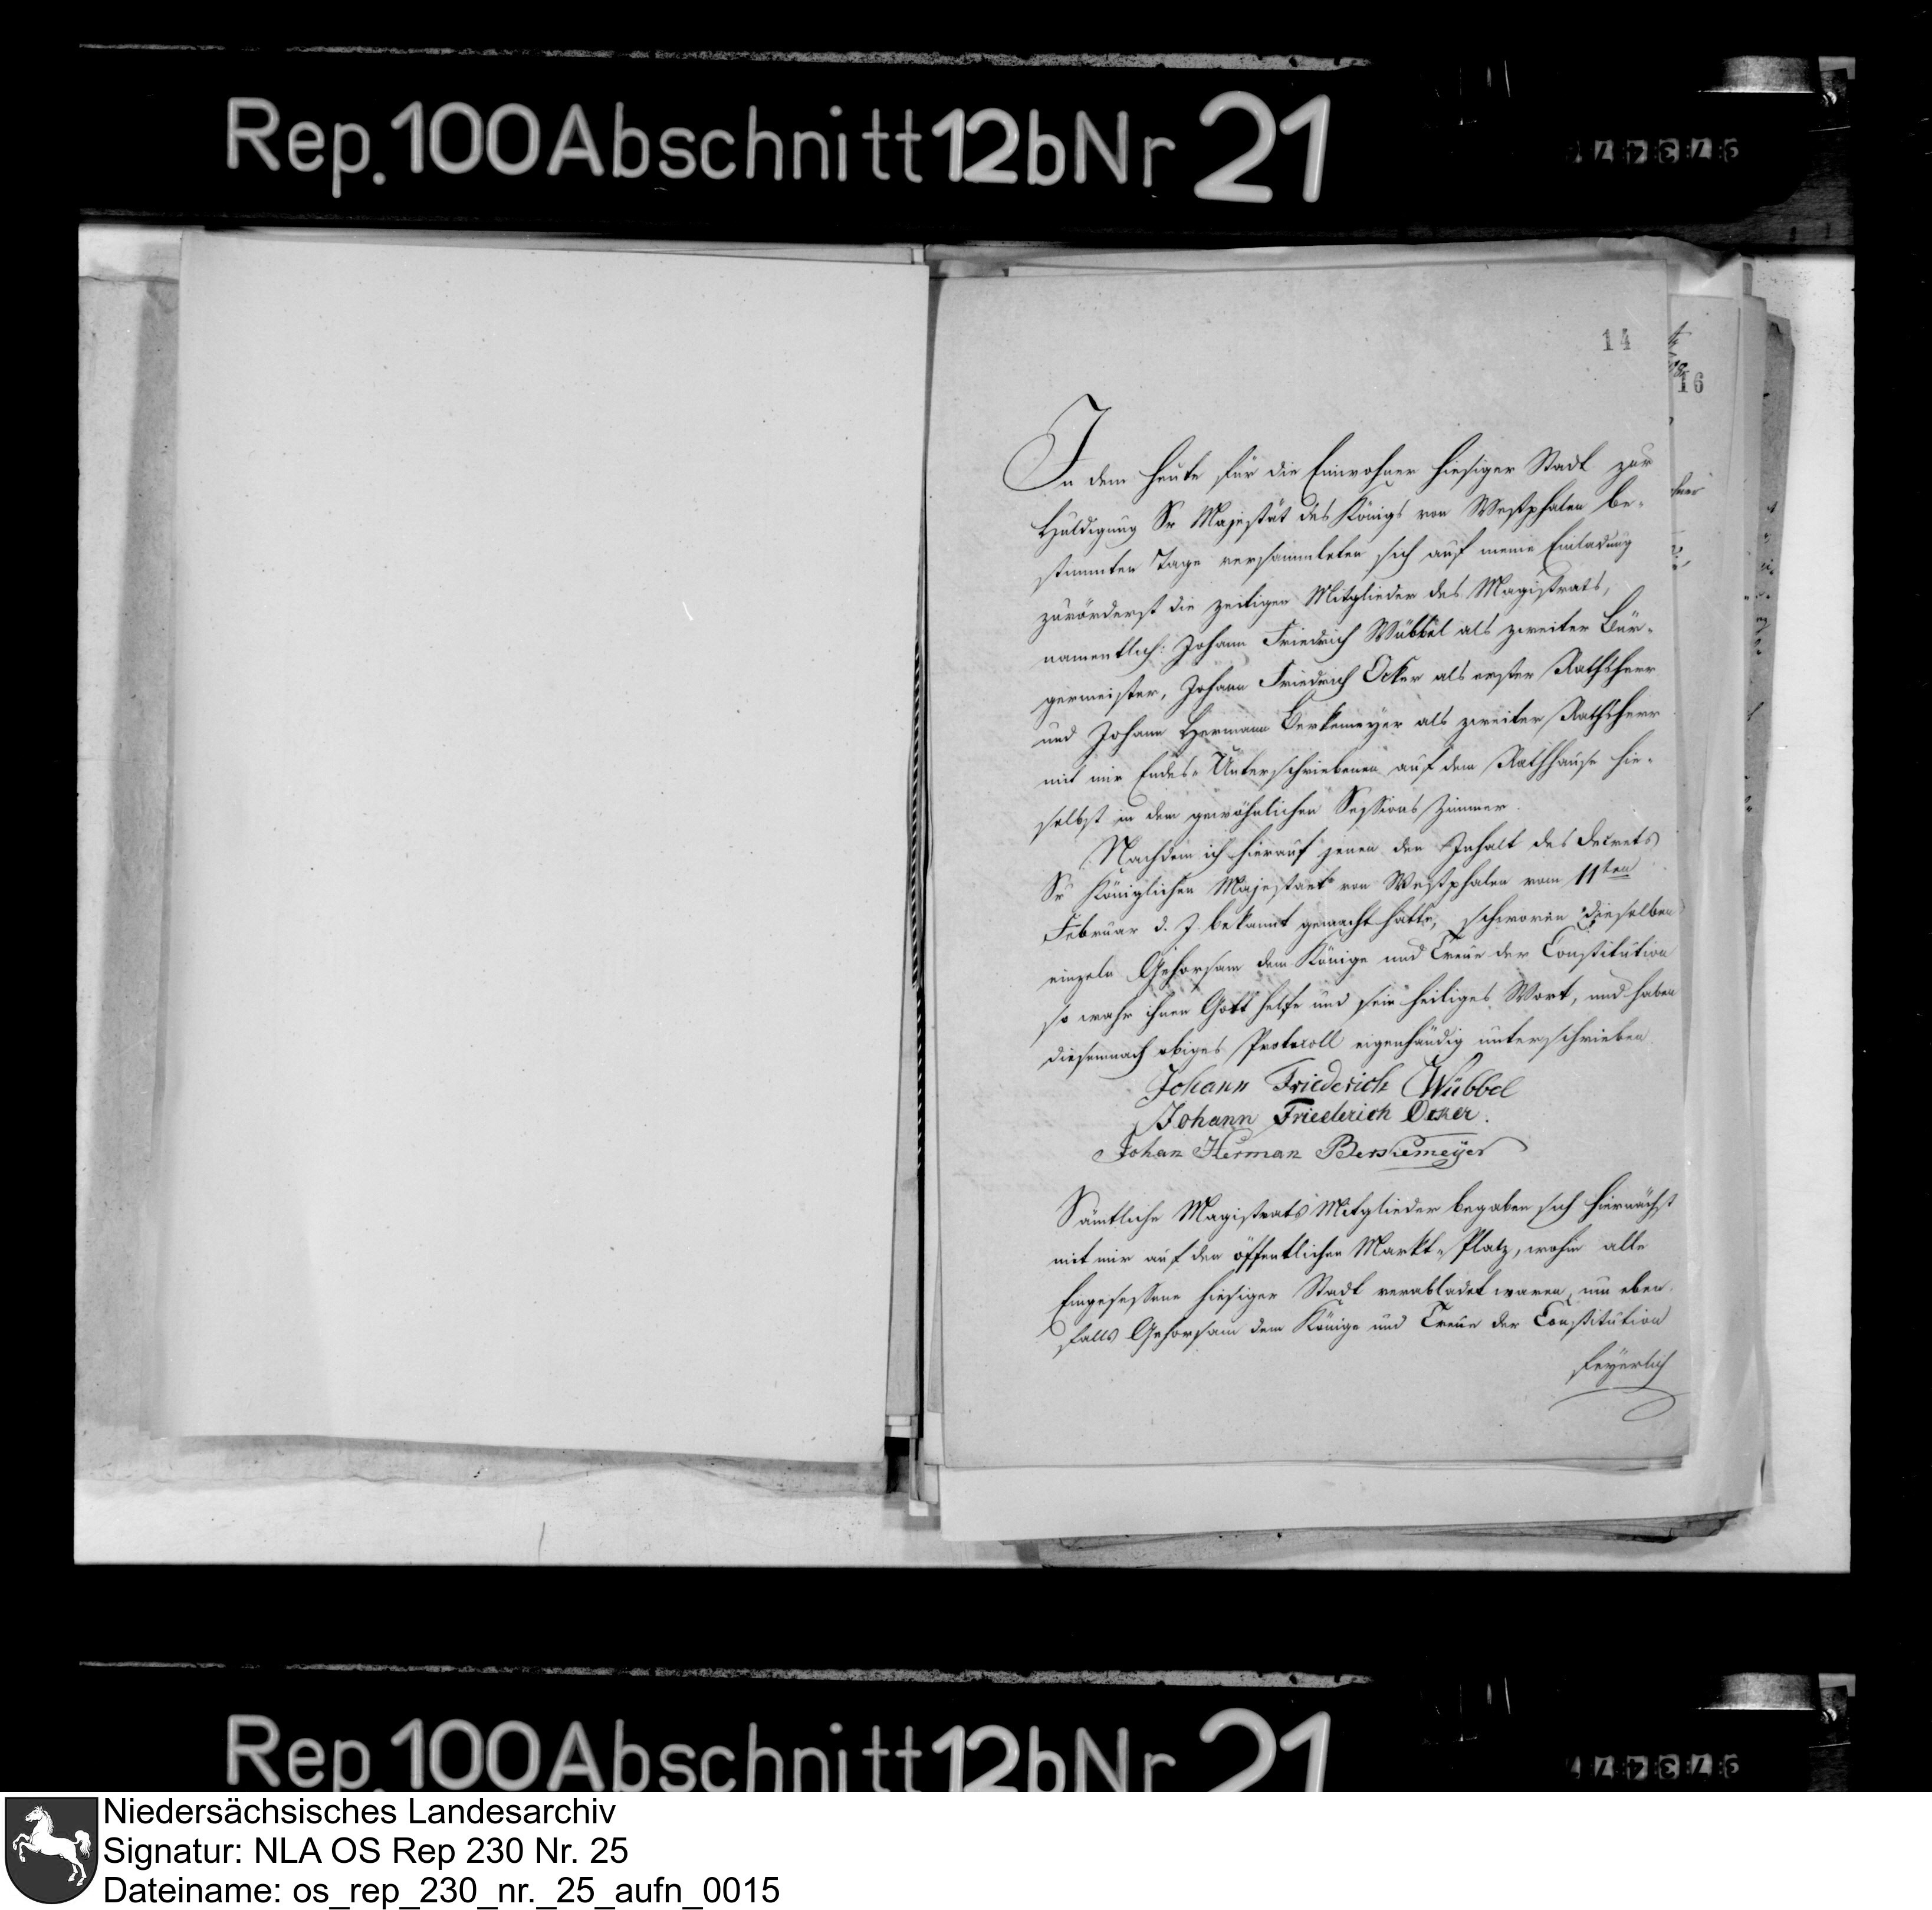 Rep. 100 Abschnitt 12b Nr 21
14
16
In dem heute für die Einwohner hiesiger Stadt zur
Huldigung Sr Majestät des Königs von Westphalen be-
stimmten Tage versammleten sich auf meine Einladung
zuvörderst die zeitigen Mitglieder des Magistrats,
namentlich: Johann Friedrich Wübbel als zweiter Bür-
germeister, Johann Friedrich Ocker als erster Rathsherr
und Johann Hermann Berkemeyer als zweiter Rathsherr
mit mir Endes-Unterschriebenen auf dem Rathhause hie-
selbst in dem gewöhnlichen Sessions Zimmer.
Nachdem ich hierauf jenen den Inhalt des Decrets
Sr Königlichen Majestaet von Westphalen vom 11ten
Februar d. J. bekannt gemacht hatte, schworen dieselben
einzeln Gehorsam dem Könige und Treue der Constitution
so wahr ihnen Gott helfe und sein heiliges Wort, und haben
diesemnach obiges Protocoll eigenhändig unterschrieben.
Johann Friederich Wübbel
Johann Friederich Ocker.
Johan Herman Berkemeÿer
Sämtliche Magistrats Mitglieder begaben sich hiernächst
mit mir auf den öffentlichen Markt-Platz, wohin alle
Eingesessene hiesiger Stadt verabladet waren, um eben
falls Gehorsam dem Könige und Treue der Constitution
feyerlich
Rep. 100 Abschnitt 12b Nr 21
Niedersächsisches Landesarchiv
Signatur: NLA OS Rep 230 Nr. 25
Dateiname: os_rep_230_nr._25_aufn_0015